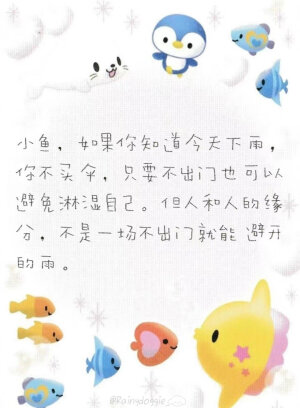 小鱼，如果你知道今天下雨，
你不买伞，只要不出门也可以
避免淋湿自己。但人和人的缘
分，不是一场不出门就能避开
的雨。
@Rainydoggie